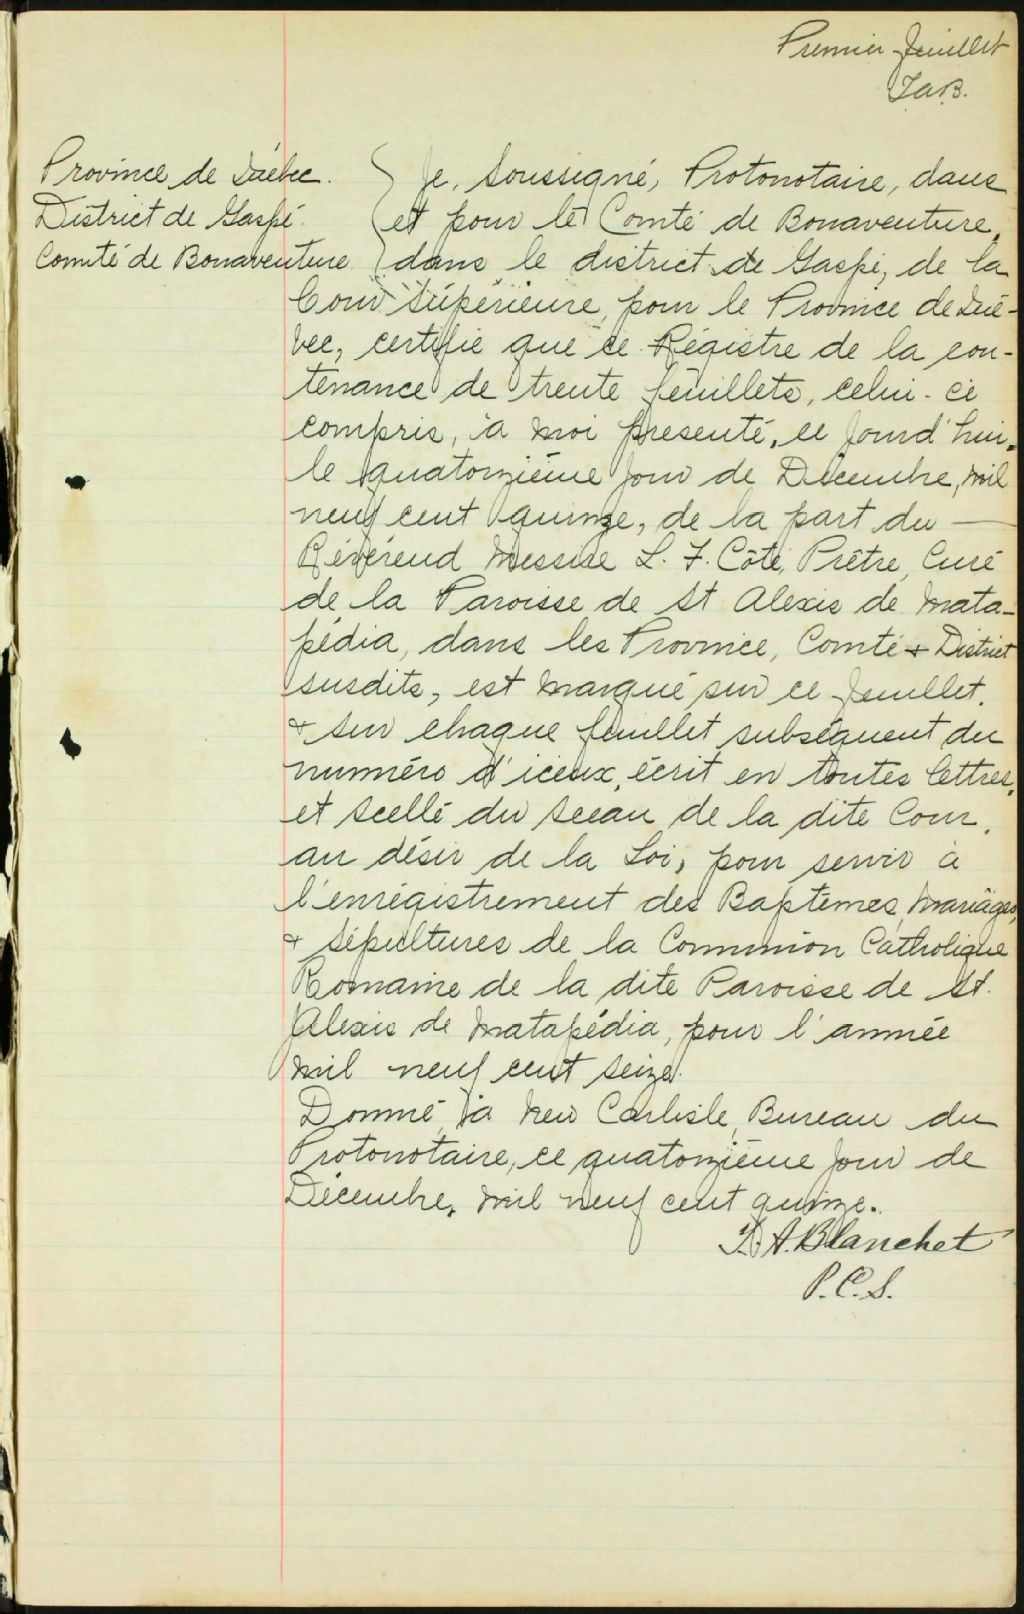 Premier feuillet
J.a.B.
Province de Québec.
District de Gaspé.
Comté de Bonaventure
Je, soussigné, Protonotaire, dans
et pour le Comté de Bonaventure,
dans le district de Gaspé, de la
Cour Supérieure, pour le Province de Qué-
bec, certifie que ce Régistre de la con-
tenance de trente feuillets, celui-ci
compris, à moi presenté, ce jourd'hui,
le quatorzième jour de Décembre, mil
neuf cent quinze, de la part du —
Révérend Messire L. F. Côté, Prêtre, Curé
de la Paroisse de St Alexis de Mata-
pédia, dans les Province, Comté & District
susdits, est marqué sur ce feuillet,
& sur chaque feuillet subséquent du
numéro d'iceux, écrit en toutes lettres,
et scellé du sceau de la dite Cour,
au désir de la Loi, pour servir à
l'enrégistrement des Baptêmes, Mariages,
& Sépultures de la Communion Catholique
Romaine de la dite Paroisse de St.
Alexis de Matapédia, pour l'année
mil neuf cent seize.
Donné, à New Carlisle, Bureau du
Protonotaire, ce quatorzième jour de
Décembre, mil neuf cent quinze.
J. A. Blanchet
P.C.S.